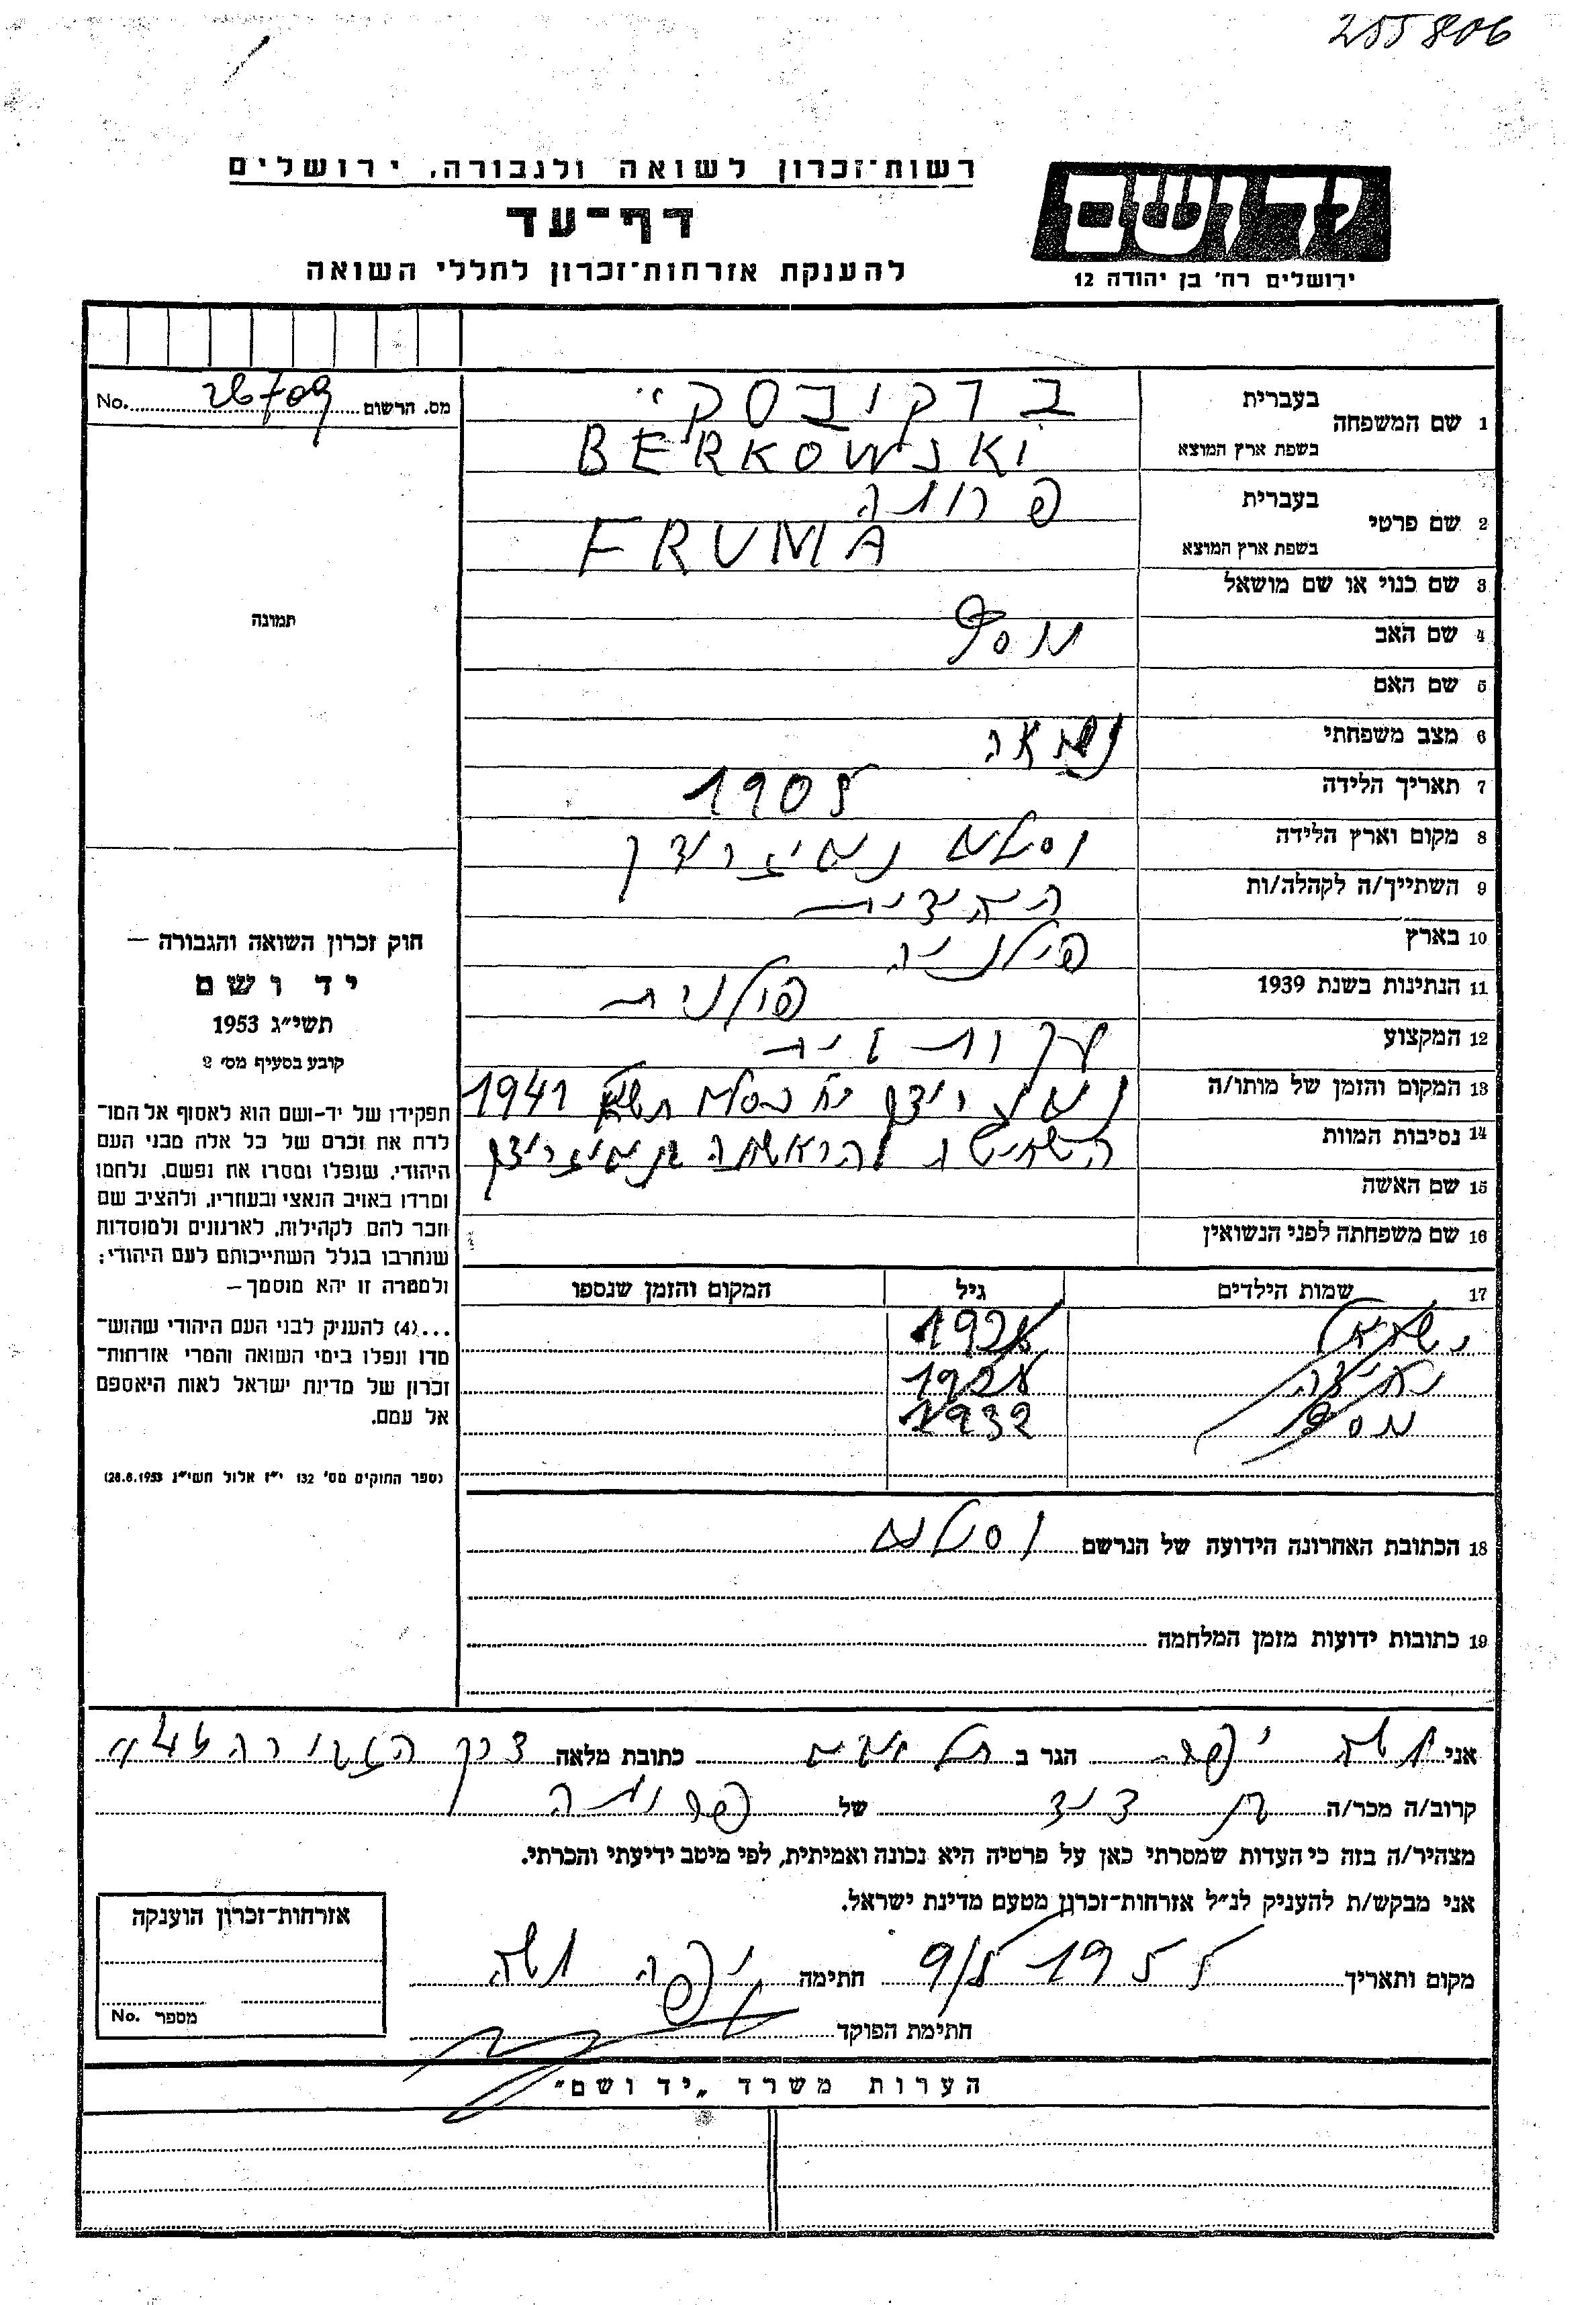 255806
רשות־זכרון לשואה ולגבורה, ירושלים
דף־עד
להענקת אזרחות־זכרון לחללי השואה
יד ושם
ירושלים רח' בן יהודה 12
No. 26709 מס. הרשום
1 שם המשפחה בעברית ברקובסקי
בשפת ארץ המוצא BERKOWSKI
2 שם פרטי בעברית פרומה
בשפת ארץ המוצא FRUMA
3 שם כנוי או שם מושאל
4 שם האב יוסף
5 שם האם
6 מצב משפחתי נשואה
7 תאריך הלידה 1905
8 מקום וארץ הלידה
9 השתייך/ה לקהלה/ות
10 בארץ
11 הנתינות בשנת 1939 פולנית
12 המקצוע
13 המקום והזמן של מותו/ה 1941
14 נסיבות המוות
15 שם האשה
16 שם משפחתה לפני הנשואין
17 שמות הילדים גיל המקום והזמן שנספו
192
192
יוסף 1932
18 הכתובת האחרונה הידועה של הנרשם
19 כתובות ידועות מזמן המלחמה
תמונה
חוק זכרון השואה והגבורה —
יד ושם
תשי״ג 1953
קובע בסעיף מס׳ 2
תפקידו של יד-ושם הוא לאסוף אל המו־
לדת את זכרם של כל אלה מבני העם
היהודי, שנפלו ומסרו את נפשם, נלחמו
ומרדו באויב הנאצי ובעוזריו, ולהציב שם
וזכר להם לקהילות, לארגונים ולמוסדות
שנחרבו בגלל השתייכותם לעם היהודי;
ולמטרה זו יהא מוסמך —
...(4) להעניק לבני העם היהודי שהוש־
מדו ונפלו בימי השואה והמרי אזרחות־
זכרון של מדינת ישראל לאות היאספם
אל עמם.
(ספר החוקים מס׳ 132 י״ז אלול תשי״ג 28.8.1953)
אני יפה הגר ב תל אביב כתובת מלאה דרך
קרוב/ה מכר/ה בת דוד של פרומה
מצהיר/ה בזה כי העדות שמסרתי כאן על פרטיה היא נכונה ואמיתית, לפי מיטב ידיעתי והכרתי.
אני מבקש/ת להעניק לנ״ל אזרחות־זכרון מטעם מדינת ישראל.
מקום ותאריך 9/5 1955 חתימה יפה
חתימת הפוקד
אזרחות־זכרון הוענקה
No. מספר
הערות משרד „יד ושם״